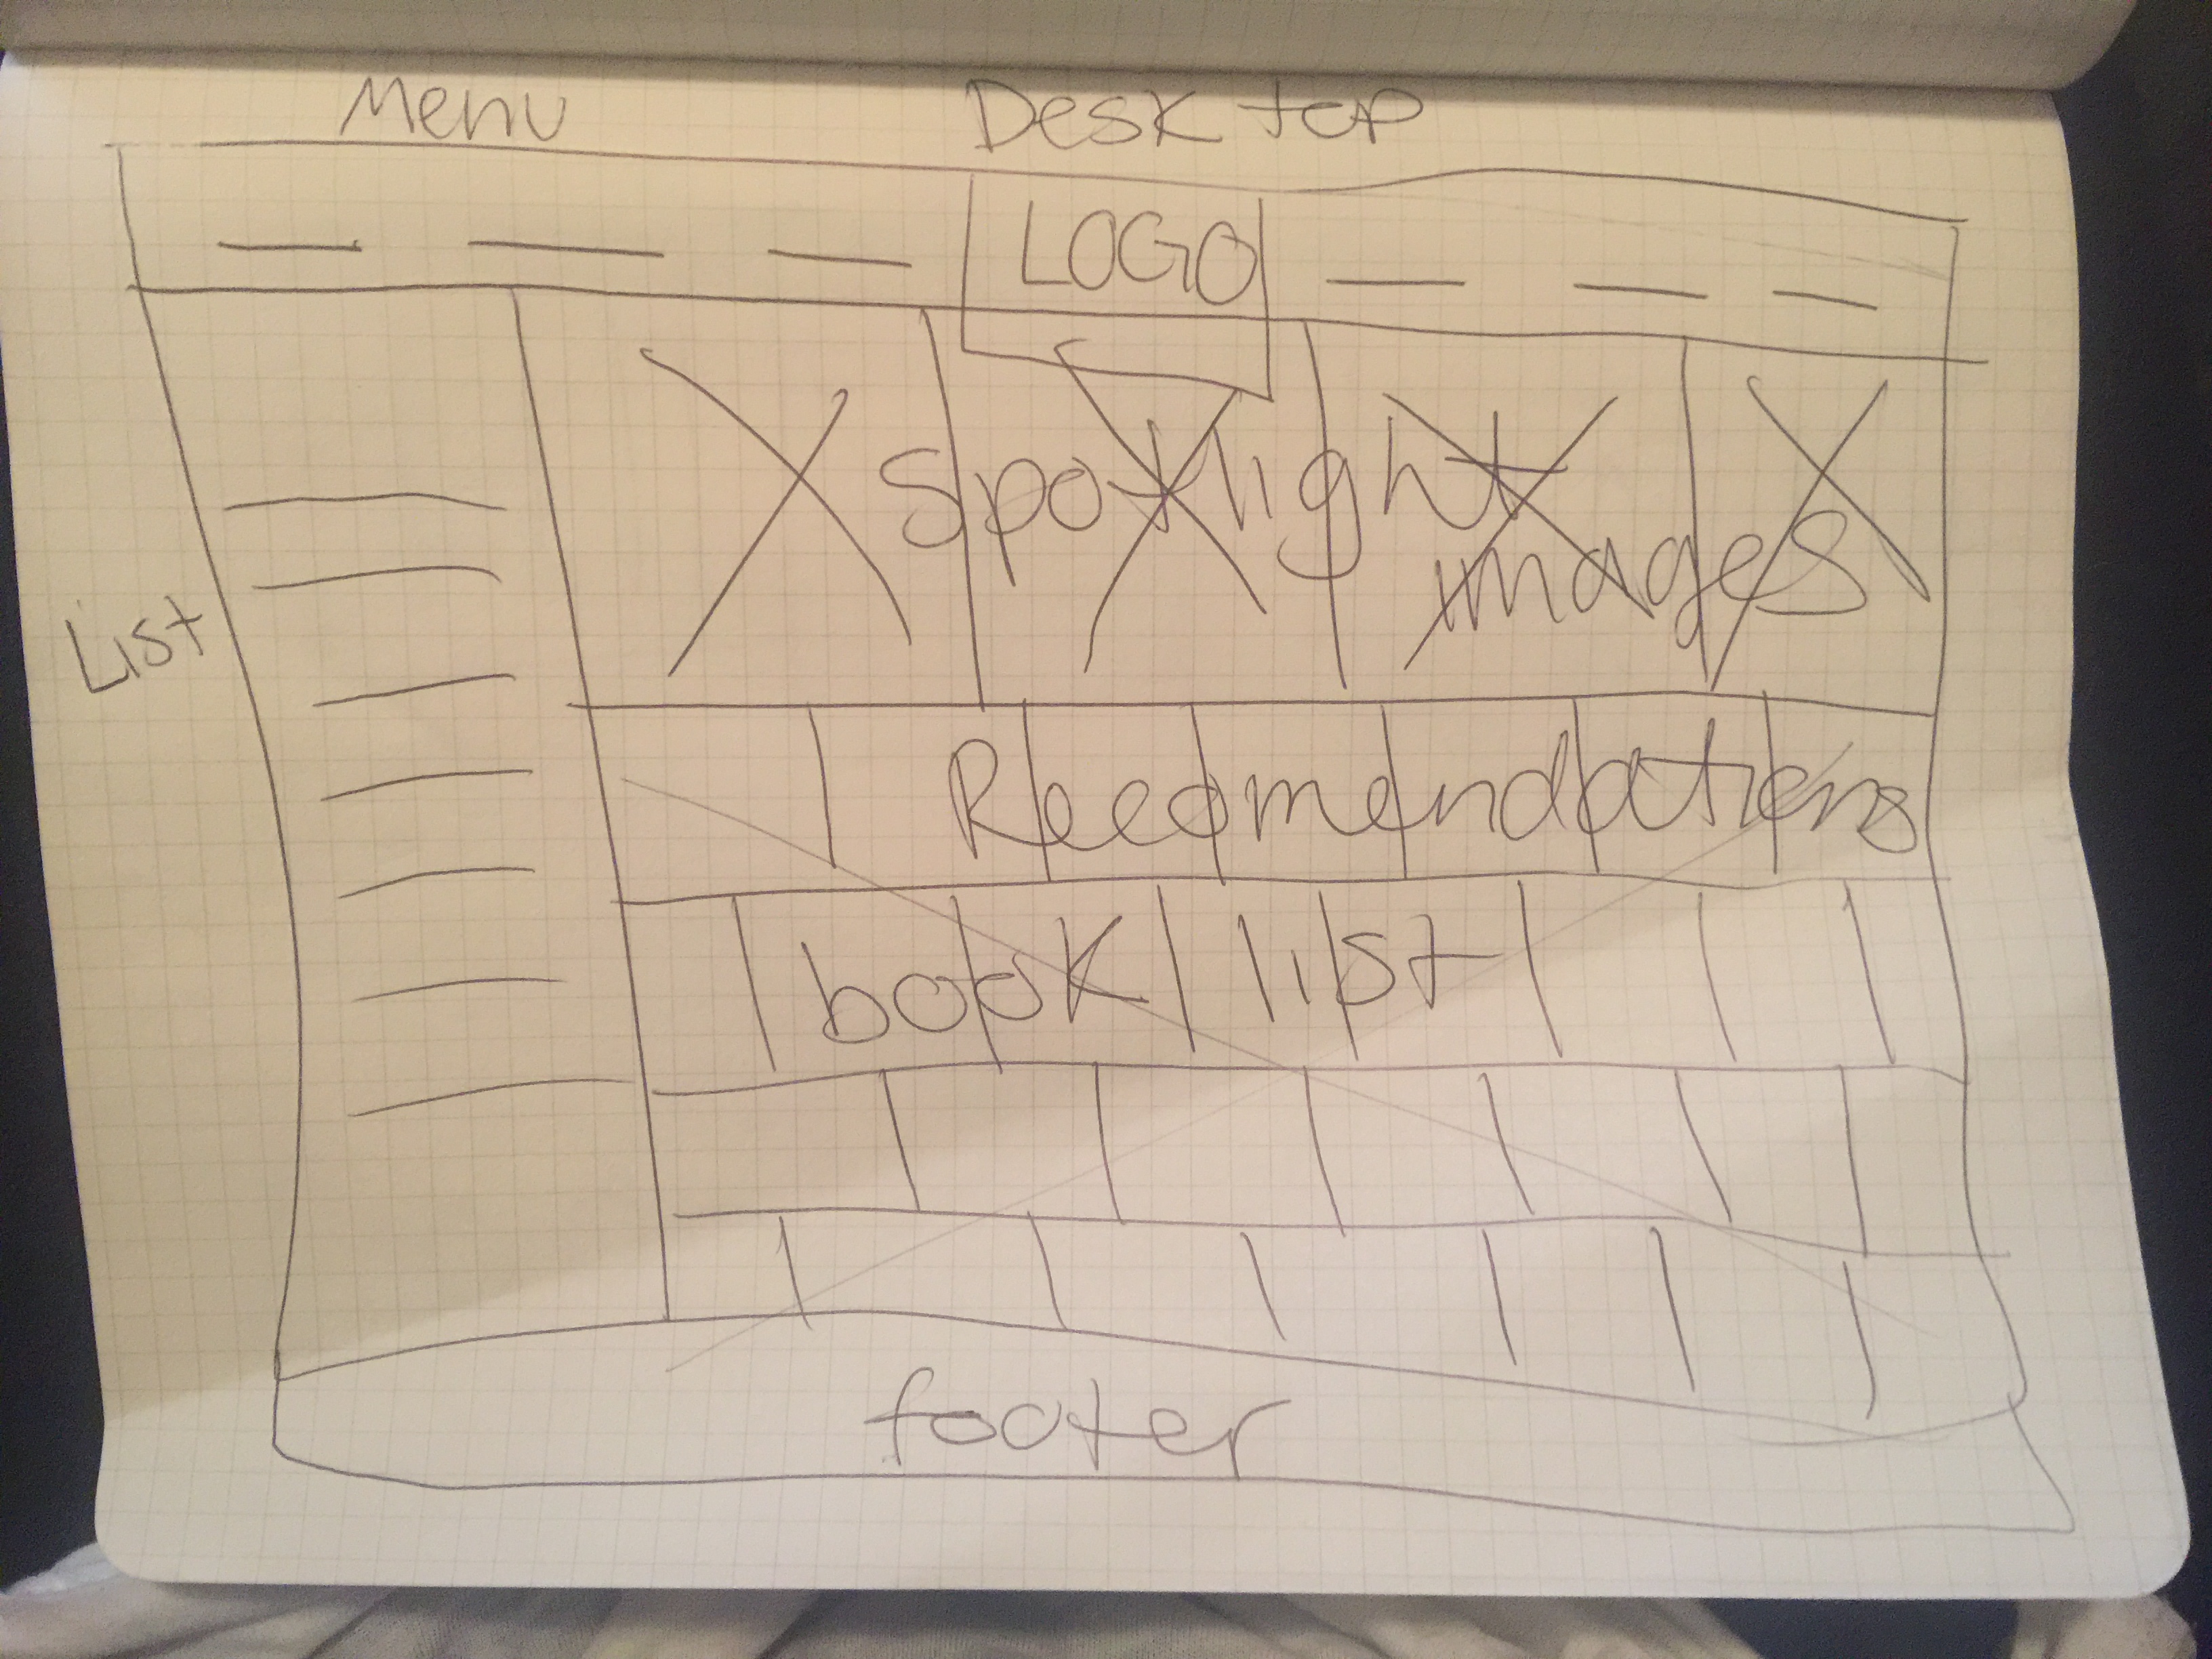 Menu
Desktop
LOGO
Spotlight
images
List
Recomendations
book list
footer